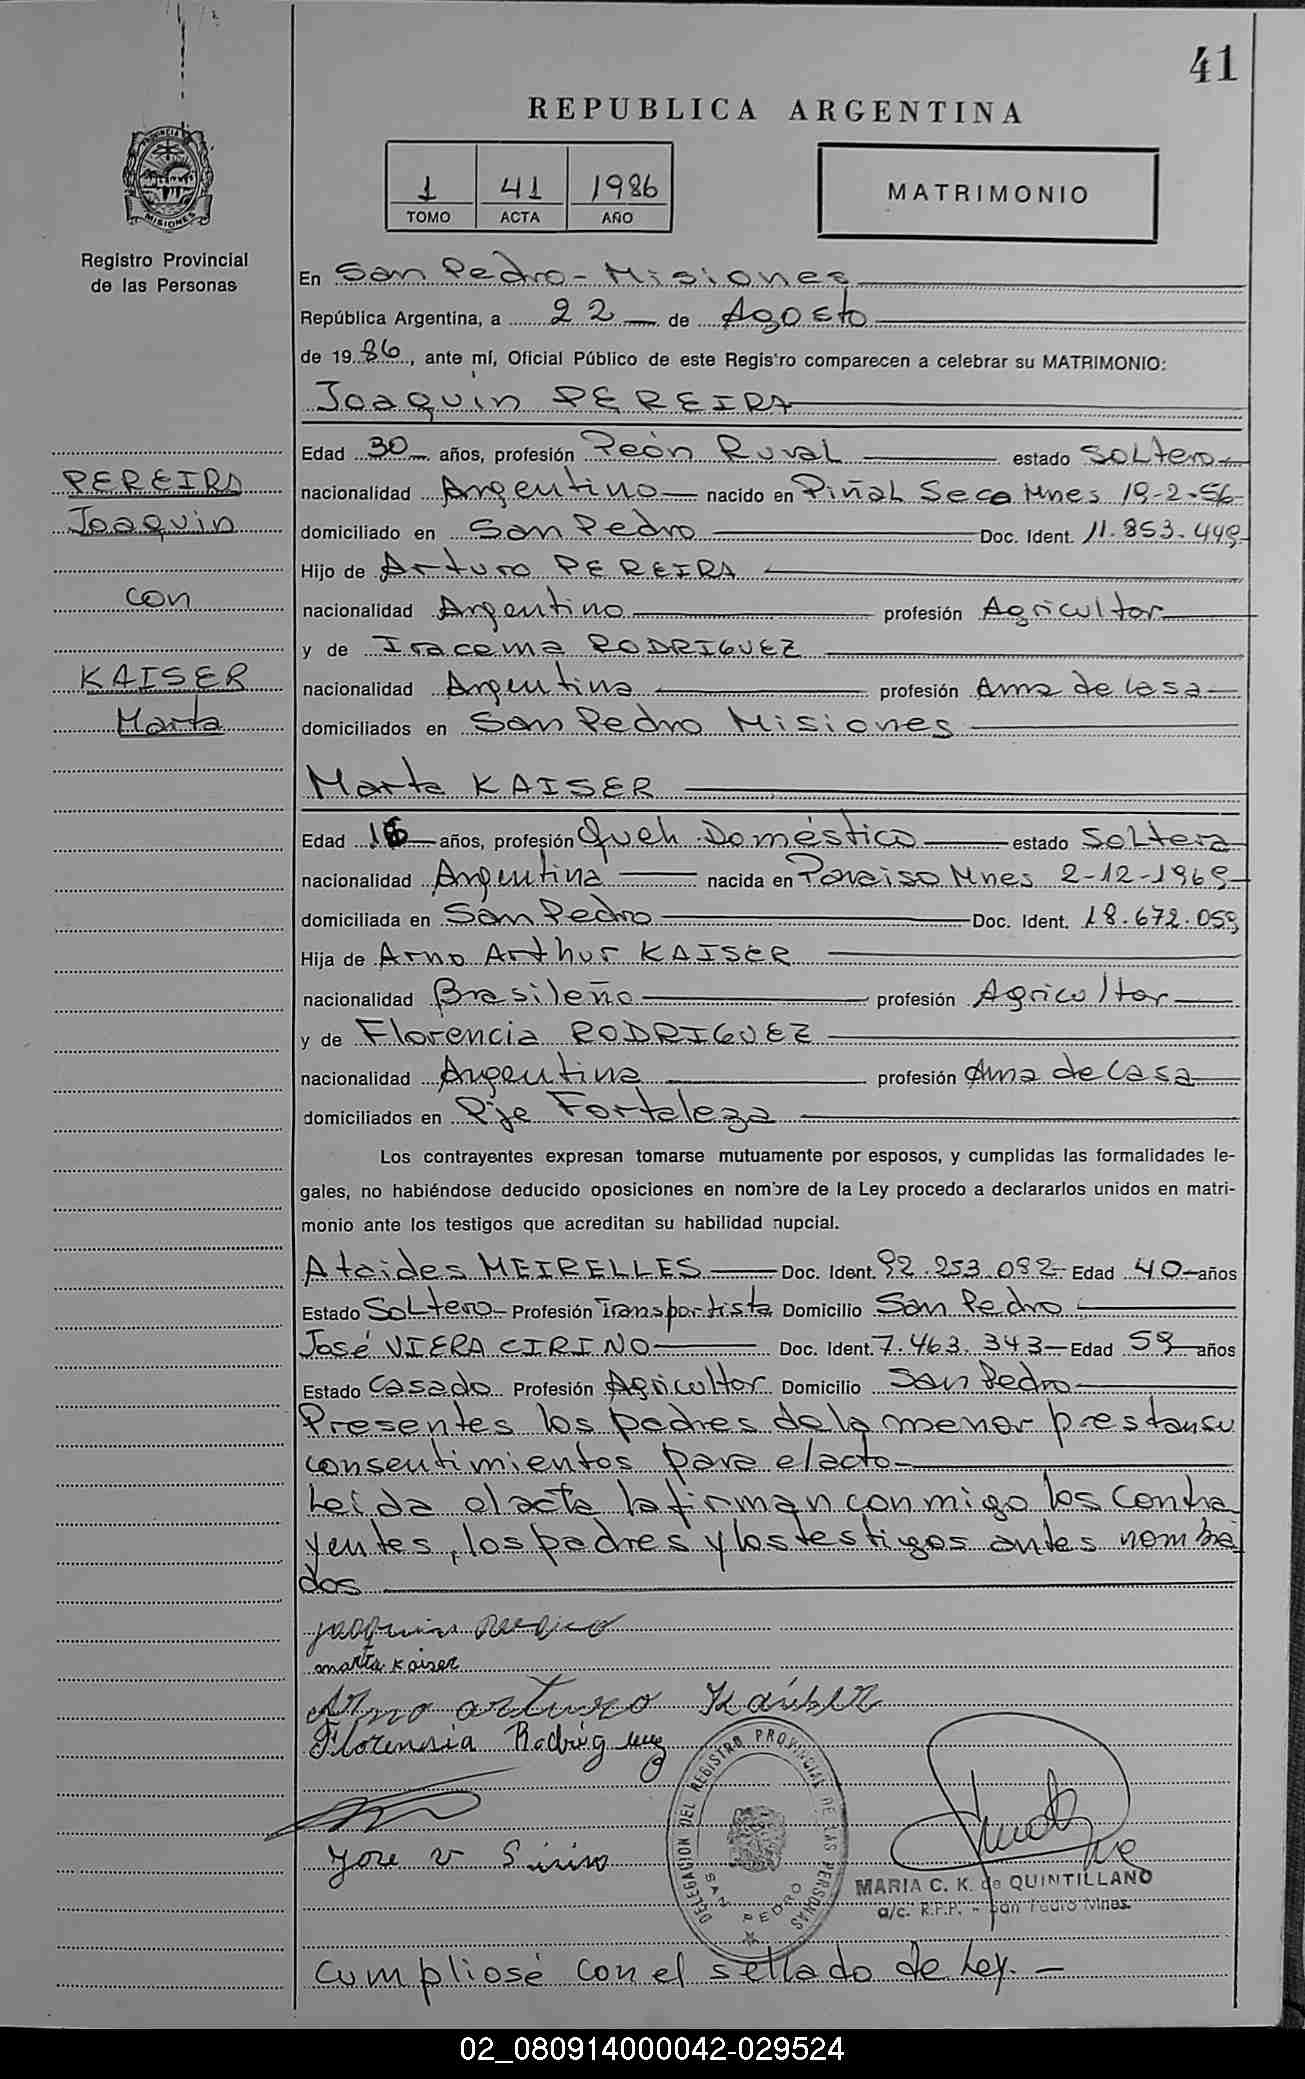 41
REPUBLICA ARGENTINA
1 41 1986
TOMO ACTA AÑO
MATRIMONIO
PROVINCIA DE
MISIONES
Registro Provincial
de las Personas
En San Pedro - Misiones
República Argentina, a 22 de Agosto
de 1986, ante mí, Oficial Público de este Registro comparecen a celebrar su MATRIMONIO:
Joaquin PEREIRA
PEREIRA
Joaquin
con
KAISER
Marta
Edad 30 años, profesión Peón Rural estado Soltero
nacionalidad Argentino nacido en Piñal Seco Mnes 19-2-56
domiciliado en San Pedro Doc. Ident. 11.853.449
Hijo de Arturo PEREIRA
nacionalidad Argentino profesión Agricultor
y de Iracema RODRIGUEZ
nacionalidad Argentina profesión Ama de Casa
domiciliados en San Pedro Misiones
Marta KAISER
Edad 16 años, profesión Queh. Doméstico estado Soltera
nacionalidad Argentina nacida en Paraiso Mnes 2-12-1969
domiciliada en San Pedro Doc. Ident. 18.672.059
Hija de Arno Arthur KAISER
nacionalidad Brasileño profesión Agricultor
y de Florencia RODRIGUEZ
nacionalidad Argentina profesión Ama de Casa
domiciliados en Pje Fortaleza
Los contrayentes expresan tomarse mutuamente por esposos, y cumplidas las formalidades le-
gales, no habiéndose deducido oposiciones en nombre de la Ley procedo a declararlos unidos en matri-
monio ante los testigos que acreditan su habilidad nupcial.
Ataides MEIRELLES Doc. Ident. 92.253.092 Edad 40 años
Estado Soltero Profesión Transportista Domicilio San Pedro
José VIERA CIRINO Doc. Ident. 7.463.343 Edad 59 años
Estado Casado Profesión Agricultor Domicilio San Pedro
Presentes los padres de la menor prestan su
consentimientos para el acto
Leída el acta la firman conmigo los contra
yentes, los padres y los testigos antes nombra
dos
marta kaiser
Arno arturo
Florensia Rodriguez
Jose v Sirino
DELEGACION DEL REGISTRO PROVINCIAL DE LAS PERSONAS
SAN PEDRO
MARIA C. K. de QUINTILLANO
a/c. R.P.P. - San Pedro Mnes.
Cumpliosé con el sellado de Ley. -
02_080914000042-029524